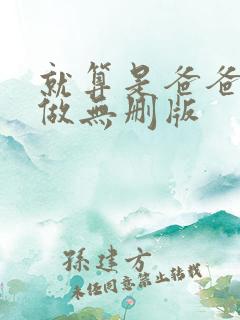 就算是爸爸
做無删版
孫建方
未经同意禁止转载